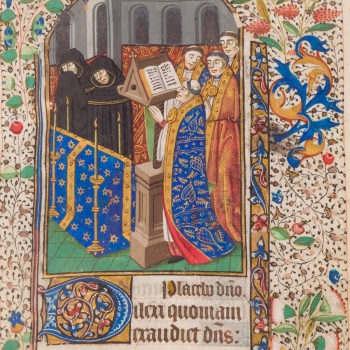 Placebo dño
Dilexi quoniam
exaudiet dñs: